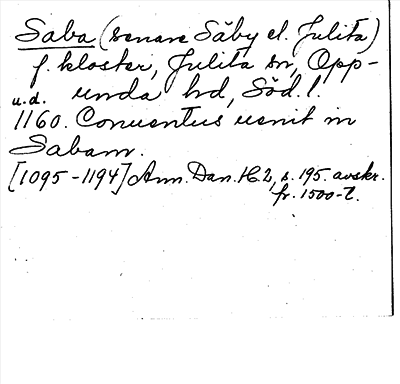 Saba (senare Säby el. Julita)
f. kloster, Julita sn, Opp-
unda hd, Söd. l.
u.d.
1160. Conuentus uenit in
Sabam.
[1095-1194] Ann. Dan. H. 2, s. 195. avskr.
fr. 1500-t.